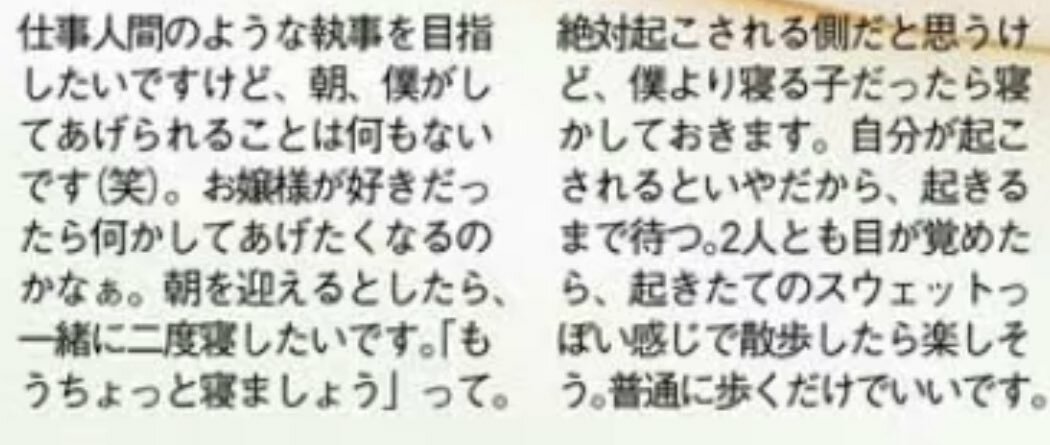 仕事人間のような執事を目指
したいですけど、朝、僕がし
てあげられることは何もない
です(笑)。お嬢様が好きだっ
たら何かしてあげたくなるの
かなぁ。朝を迎えるとしたら、
一緒に二度寝したいです。「も
うちょっと寝ましょう」って。
絶対起こされる側だと思うけ
ど、僕より寝る子だったら寝
かしておきます。自分が起こ
されるといやだから、起きる
まで待つ。2人とも目が覚めた
ら、起きたてのスウェットっ
ぽい感じで散歩したら楽しそ
う。普通に歩くだけでいいです。